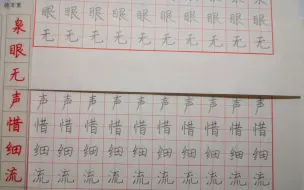 泉
眼 眼 眼 眼 眼 眼 眼 眼 眼
无 无 无 无 无 无 无 无 无 无
声 声 声 声 声 声 声 声 声 声
惜 惜 惜 惜 惜 惜 惜 惜 惜 惜
细 细 细 细 细 细 细 细 细 细
流 流 流 流 流 流 流 流 流 流